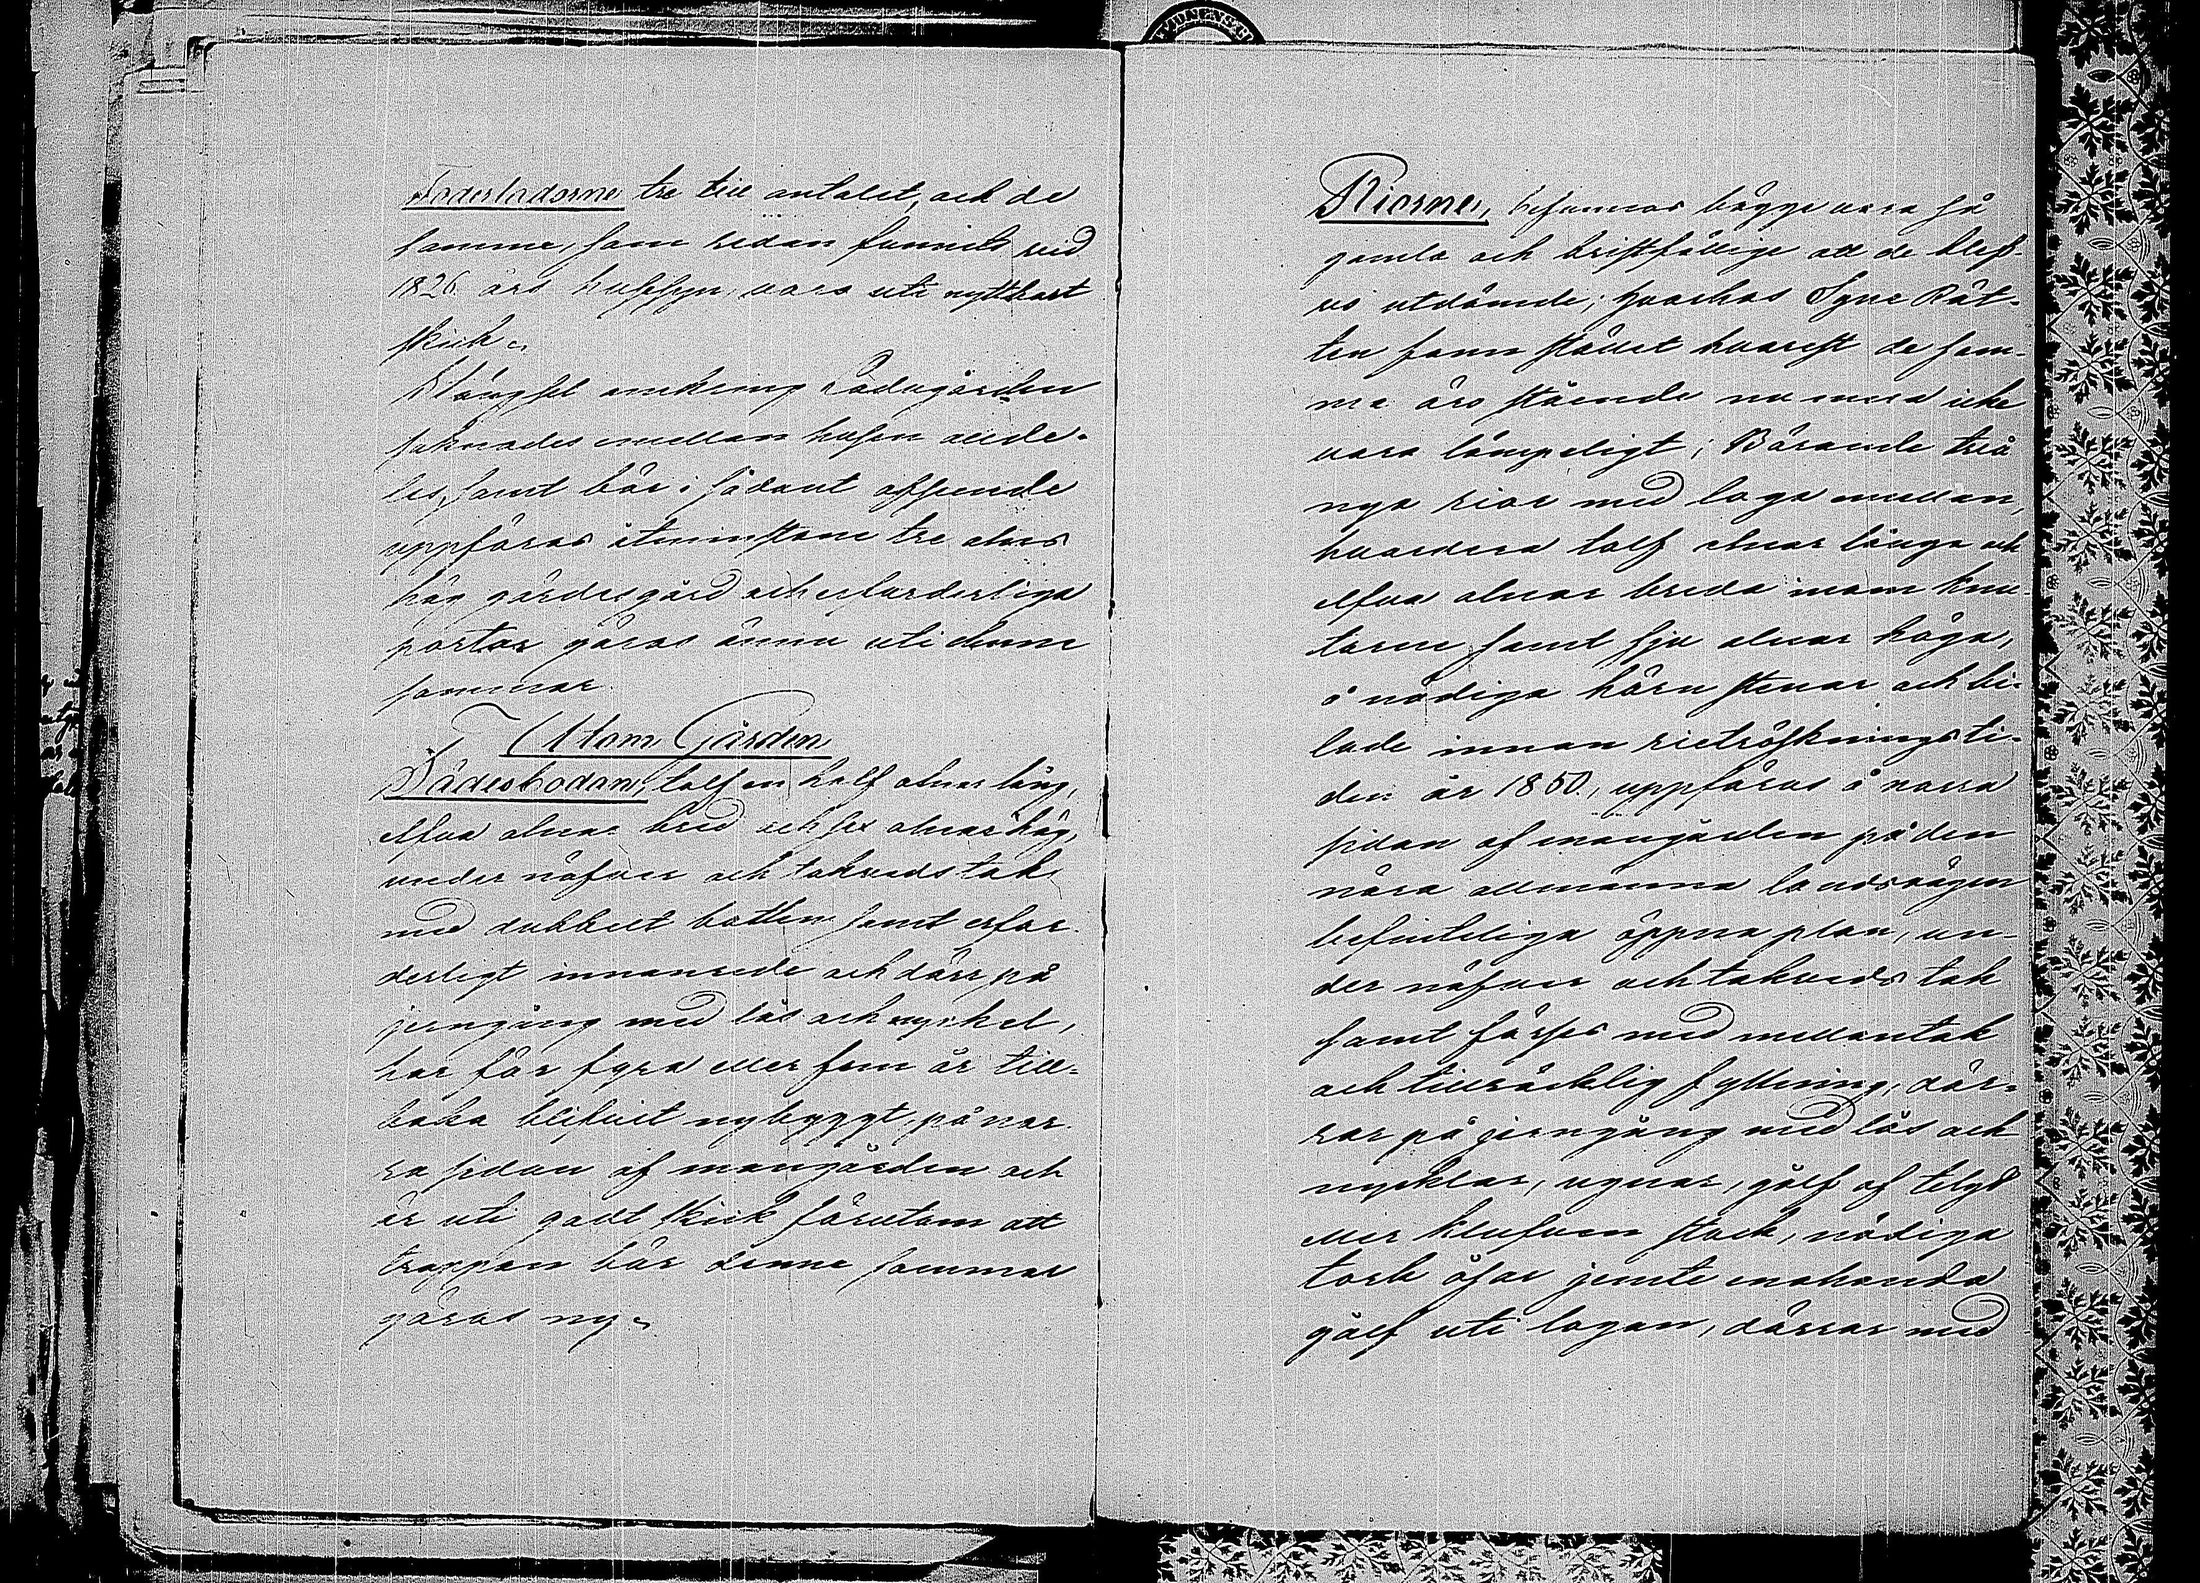 Foderladorne tre till antalet, och de
samme, som redan funnits vid
1826 års hussyn, vara uti nyttbart
skick.
Stängsel omkring Ladugården
saknades emellan husen allde-
les, samt bör i sådant afseende
uppföras åtminstone tre alnar
hög gärdesgård och erforderliga
portar göras ännu uti denne
sommar.
Utom Gården
Sädesbodan, tolf en half alnar lång,
elfva alnar bred och sex alnar hög,
under näfver och takvedstak
med dubbelt botten samt erfor-
derligt innanrede och dörr på
jerngång med lås och nyckel,
har för fyra eller fem år till-
baka blifvit nybyggt, på nor-
ra sidan af mangården och
är uti godt skick förutom att
trappan bör denne sommar
göras ny.
Riorne, befunnos bägge vara så
gamla och bristfällige att de blef-
vo utdömde; hvarhos Syne Rät-
ten fann stället hvarest de sam-
ma äro stående nu mera icke
vara lämpeligt; Börande två
nya rior med loga mellan,
hvardera tolf alnar långa och
elfva alnar breda inom knu-
tarne samt sju alnar höga,
å nödiga hörn stenar och bi-
lade innan rietröskningsti-
den år 1850, uppföras å norra
sidan af mangården på den
nära allmänna landsvägen
befinteliga öppna plan, un-
der näfver och takveds tak
samt förses med mellantak
och tillräcklig fyllning, dör-
rar på jerngång med lås och
nycklar, ugnar, golf af telgd
eller klufven stock, nödiga
tork åsar jemte enahanda
golf uti logan, dörrar med